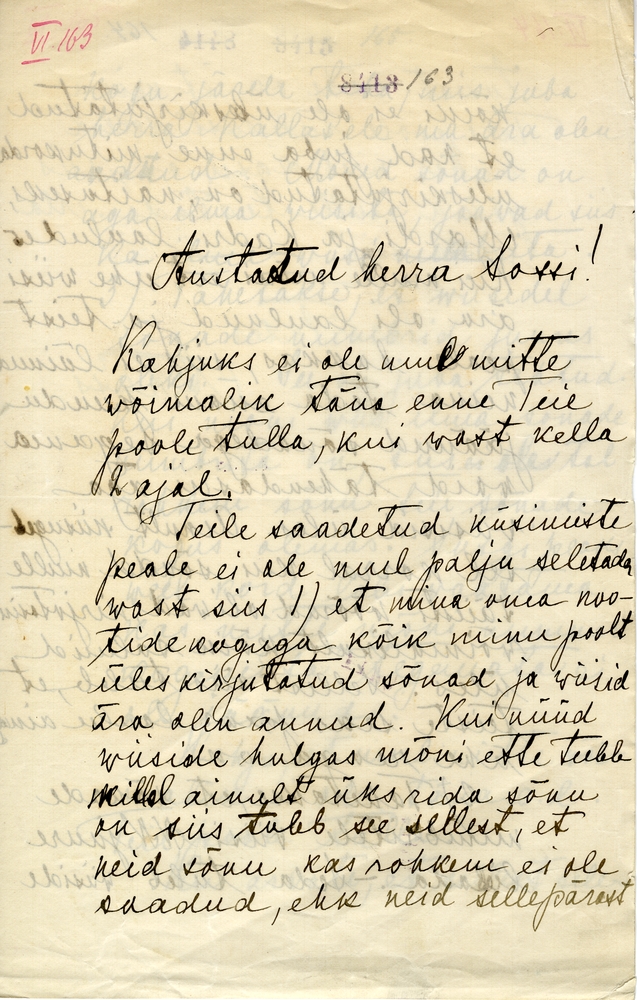 VI 163
8413 163
Austatud herra Sossi!
Kahjuks ei ole mul mitte
wõimalik täna enne Teie
poole tulla, kui wast kella
2 ajal.
Teile saadetud küsimiste
peale ei ole mul palju seletada
wast siis 1) et mina oma noo-
tidekoguga kõik minu poolt
üleskirjutatud sõnad ja wiisid
ära olen annud. Kui nüüd
wiiside hulgas mõni ette tuleb
millel ainult üks rida sõnu
on siis tuleb see sellest, et
neid sõnu kas rohkem ei ole
saadud, ehk neid sellepärast